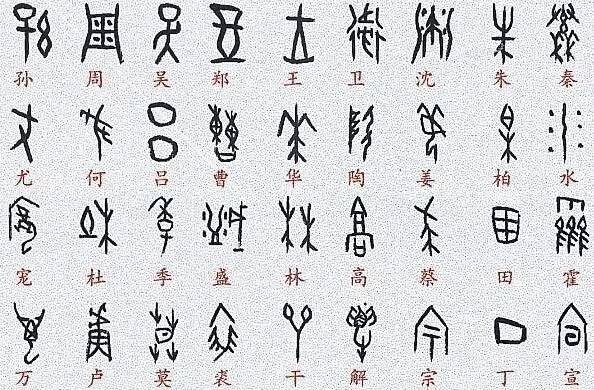 孙 周 吴 郑 王 卫 沈 朱 秦
尤 何 吕 曹 华 陶 姜 柏 水
宠 杜 季 盛 林 高 蔡 田 霍
万 卢 莫 裘 干 解 宗 丁 宣